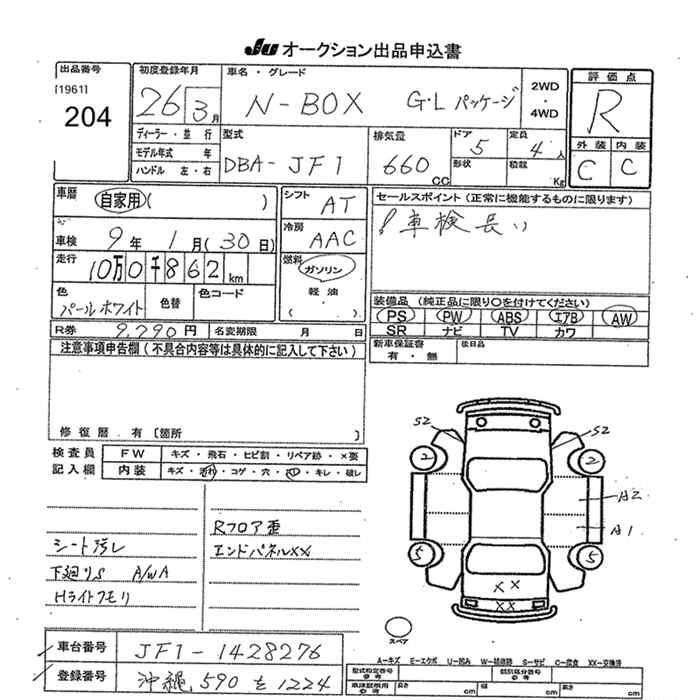 JU オークション出品申込書
出品番号
[1961]
204
初度登録年月
26 3月
車名・グレード
N-BOX G・L パッケージ
2WD・4WD
評価点
R
外装 内装
C C
ディーラー・並行
モデル年式 年
ハンドル 左・右
型式
DBA-JF1
排気量
660 CC
ドア
5
形状
定員
4人
積載
Kg
車歴
自家用( )
車検 9年 1月(30日)
走行 10万0千862km
色
パールホワイト
色替
色コード
シフト
AT
冷房
AAC
燃料
ガソリン
軽油
( )
セールスポイント(正常に機能するものに限ります)
! 車検長い
装備品(純正品に限り○を付けてください)
PS PW ABS エアB AW
SR ナビ TV カワ
新車保証書
有・無
後日品
R券 9,790円
名変期限 月 日
注意事項申告欄(不具合内容等は具体的に記入して下さい)
修復歴 有〔箇所 〕
検査員
記入欄
FW キズ・飛石・ヒビ割・リペア跡・×要
内装 キズ・汚れ・コゲ・穴・スレ・キレ・破レ
シート汚レ
下廻りS A/WA
Hライトクモリ
Rフロア歪
エンドパネルXX
S2 S2
2 2
A2
A1
5 5
XX
XX
スペア
A-キズ E-エクボ U-凹み W-補修跡 S-サビ C-腐食 XX-交換済
車台番号 JF1-1428276
登録番号 沖縄 590 を 1224
型式指定番号
参考
類別区分番号
参考
車検証発行用
参考
長さ cm 幅 cm 高さ cm